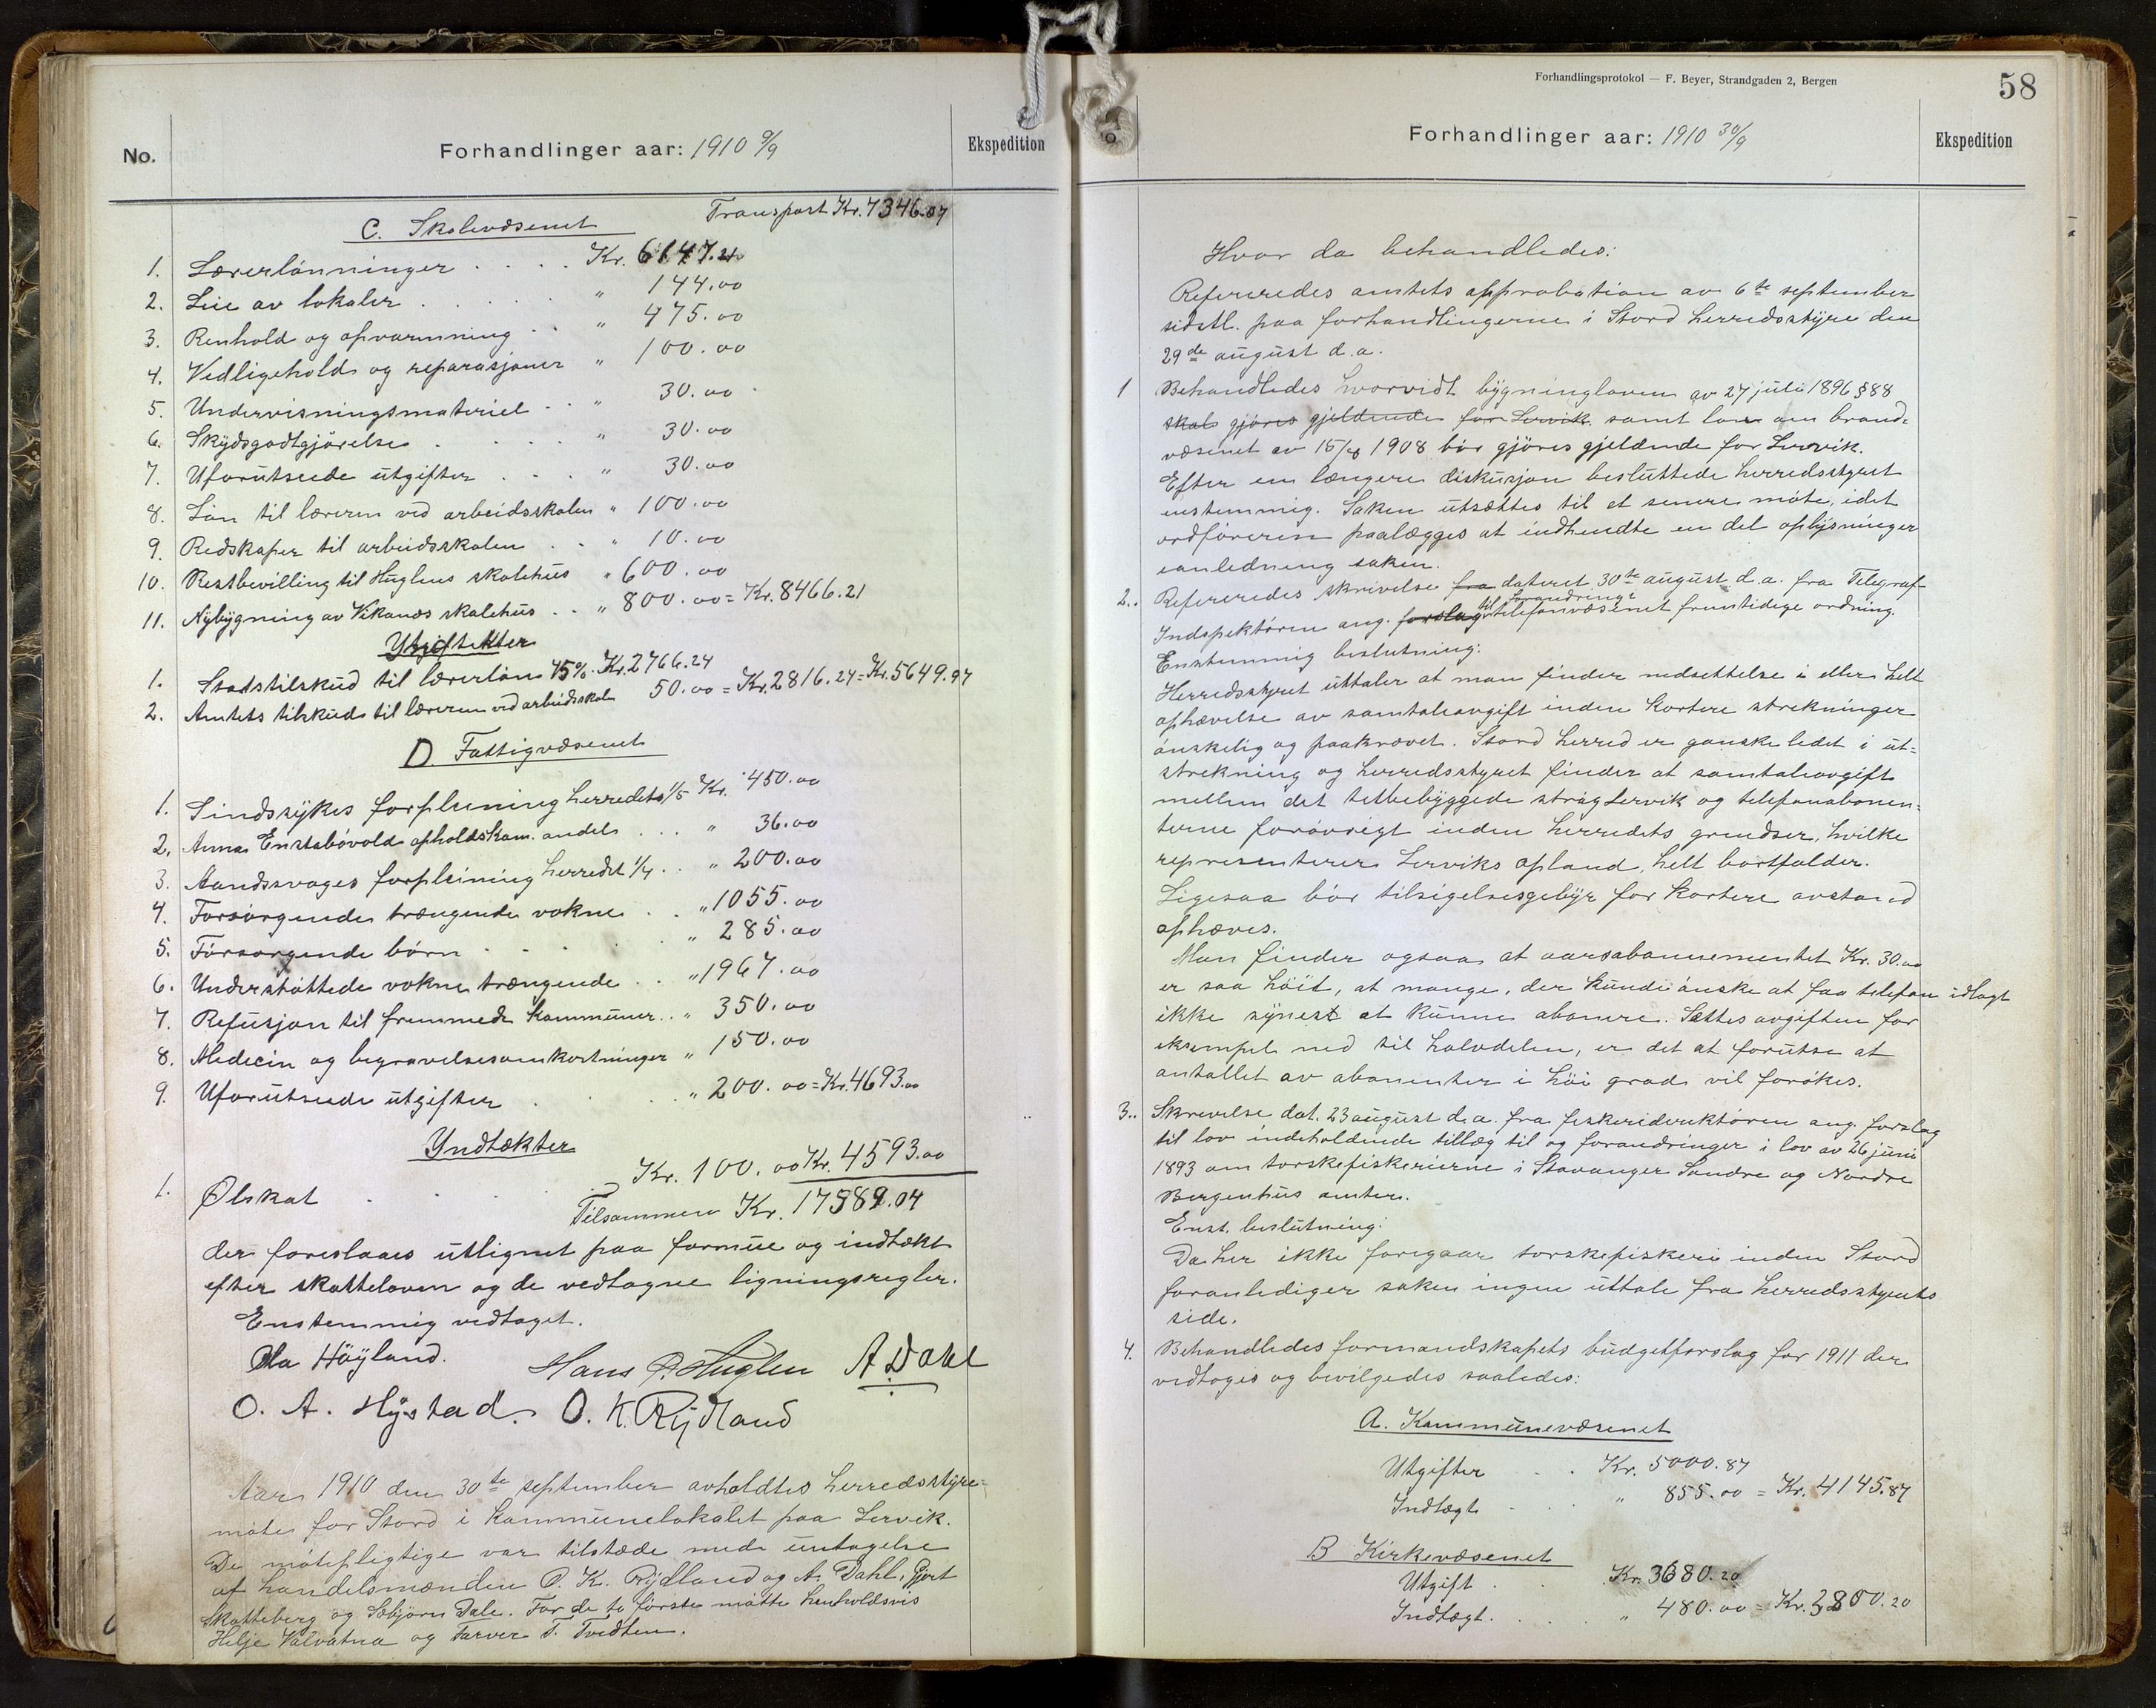 No.
Forhandlinger aar: 1910 9/9
Ekspedition
Transport Kr. 7346.07
C. Skolevæsenet
1. Lærerlönninger . . . . Kr. 6147.21
2. Leie av lokaler . . . . . " 144.00
3. Renhold og opvarmning . . " 475.00
4. Vedligehold og reparasjoner " 100.00
5. Undervisningsmateriel . . " 30.00
6. Skydsgodtgjörelse . . . . " 30.00
7. Uforutseede utgifter . . . " 30.00
8. Lön til læreren ved arbeidsskolen " 100.00
9. Redskaper til arbeidsskolen . . " 10.00
10. Restbevilling til Huglens skolehus " 600.00
11. Nybygning av Vikanæs skolehus . . " 800.00 = Kr. 8466.21
1. Statstilskud til lærerlön 45% Kr. 2766.24
2. Amtets tilskud til læreren ved arbeidsskolen 50.00 = Kr. 2816.24 = Kr. 5649.97
D. Fattigvæsenet
1. Sindssykes forpleining herredets 1/5 Kr. 450.00
2. Anna opholdskom. andel . . . " 36.00
3. Aandssvages forpleining herredet 1/4 . . " 200.00
4. Forsörgende trængende voksne . . " 1055.00
5. Forsörgende börn . . . . " 285.00
6. Understöttede voksne trængende . . " 1967.00
7. Refusjon til fremmede kommuner . . " 350.00
8. Medecin og begravelsesomkostninger " 150.00
9. Uforutseede utgifter . . . " 200.00 = Kr. 4693.00
Yndtækter
1. Ølskat . . . . . Kr. 100.00 Kr. 4593.00
Tilsammen Kr. 17589.04
der foreslaaes utlignet paa formue og indtækt
efter skatteloven og de vedtagne ligningsregler.
Enstemmig vedtaget.
Ola Höyland. Hans P. Huglen A. Dahl
O. A. Hystad. O. K. Rydland
Aar 1910 den 30te september avholdtes herredsstyre=
möte for Stord i kommunelokalet paa Lervik.
De mötepligtige var tilstæde med undtagelse
af handelsmænden O. K. Rydland og A. Dahl, Gjert
Skatteberg og Sæbjörn Dale. For de to förste mötte henholdsvis
Helje Valvatna og Tarver T. Tvedten.
Forhandlingsprotokol — F. Beyer, Strandgaden 2, Bergen
58
Forhandlinger aar: 1910 30/9
Ekspedition
Hvor da behandledes:
Refereredes amtets approbation av 6te september
sidstl. paa forhandlingerne i Stord herredsstyre den
29de august d.a.
1 Behandledes hvorvidt bygningloven av 27 juli 1896 § 88
skal gjöres gjeldende for Lervik samt lov om brand=
væsenet av 15/8 1908 bör gjöres gjeldende for Lervik.
Efter en længere diskusjon besluttede herredsstyret
enstemmig. Saken utsættes til et senere möte, idet
ordföreren paalægges at indhendte en del oplysninger
ianledning saken.
2. Refereredes skrivelse fra dateret 30te august d.a. fra Telegraf-
Indspektören ang. forslag til forandringe telefonvæsenet fremtidige ordning.
Enstemmig beslutning:
Herredsstyret uttaler at man finder nedsettelse i eller helt
ophævelse av samtaleavgift inden kortere strekninger
önskelig og paakrævet. Stord herred er ganske lidet i ut=
strekning og herredsstyret finder at samtaleavgift
mellem det tetbebyggede strög Lervik og telefonabonen=
terne forövrigt inden herredets grendser, hvilke
representerer Lerviks opland, helt bortfalder.
Ligesaa bör tilsigelsesgebyr for kortere avstand
ophæves.
Man finder ogsaa at aarsabonnementet Kr. 30.00
er saa höit, at mange, der kunde önske at faa telefon idlagt
ikke synest at kunne abonere. Sættes avgiften for
eksempel ned til halvdelen, er det at forutse at
antallet av abonenter i höi grad vil forökes.
3. Skrevelse dat. 23 august d.a. fra fiskeridirektören ang. forslag
til lov indeholdende tillæg til og forandringer i lov av 26 juni
1893 om torskefiskerierne i Stavanger Söndre og Nordre
Bergenhus amter.
Enst. beslutning:
Da her ikke foregaar torskefiskeri inden Stord
foranlediger saken ingen uttale fra herredsstyrets
side.
4. Behandledes formandskapets budgetforslag for 1911 der
vedtoges og bevilgedes saaledes:
A. Kommunevæsenet
Utgifter . . . Kr. 5000.87
Indtægt . . . " 855.00 = Kr. 4145.87
B Kirkevæsenet
Utgift . . . Kr. 3680.20
Indtægt . . . " 480.00 = Kr. 3200.20